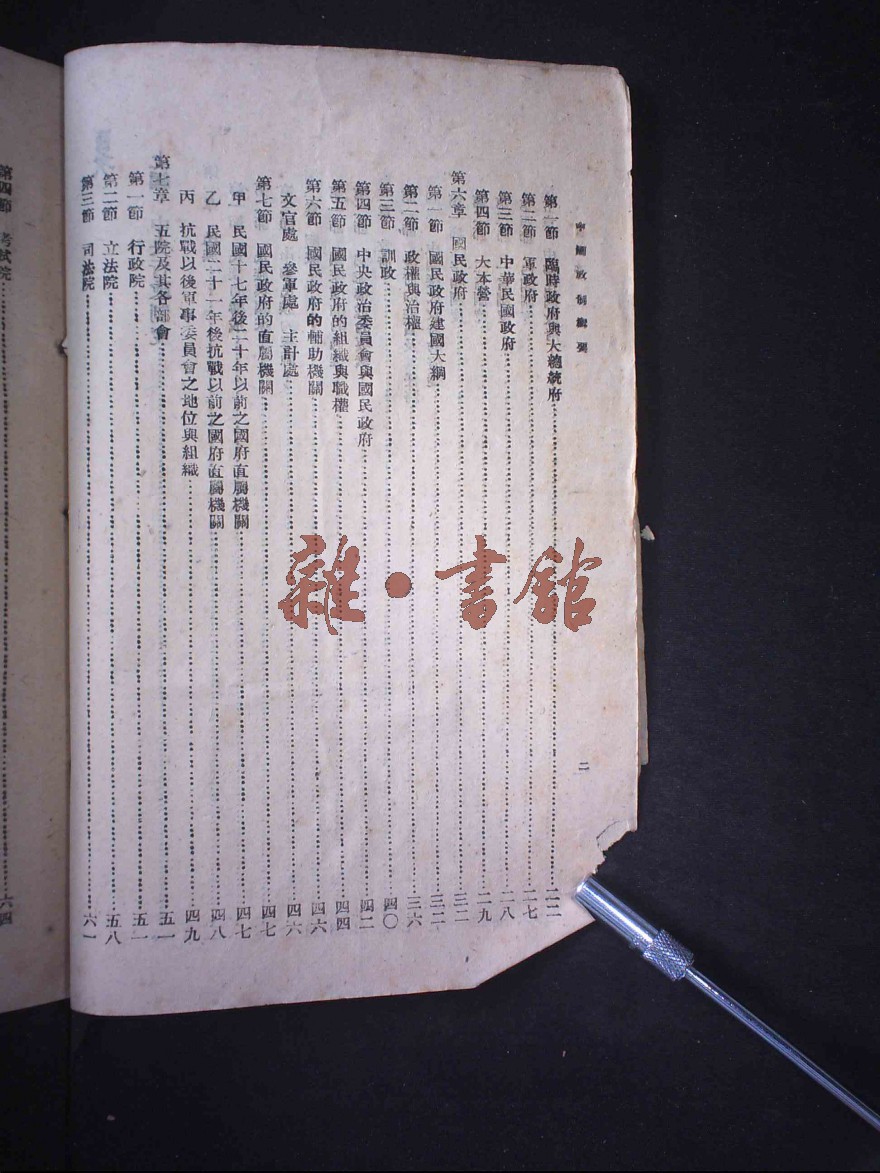 中國政制概要
二
第一節　臨時政府與大總統府……二二
第二節　軍政府……二七
第三節　中華民國政府……二八
第四節　大本營……二九
第六章　國民政府……三二
第一節　國民政府建國大綱……三二
第二節　政權與治權……三六
第三節　訓政……四〇
第四節　中央政治委員會與國民政府……四二
第五節　國民政府的組織與職權……四四
第六節　國民政府的輔助機關……四六
文官處　參軍處　主計處……四六
第七節　國民政府的直屬機關……四七
甲　民國十七年後二十年以前之國府直屬機關……四七
乙　民國二十一年後抗戰以前之國府直屬機關……四八
丙　抗戰以後軍事委員會之地位與組織……四九
第七章　五院及其各部會……五一
第一節　行政院……五一
第二節　立法院……五八
第三節　司法院……六一
第四節　考試院……六四
雜·書館